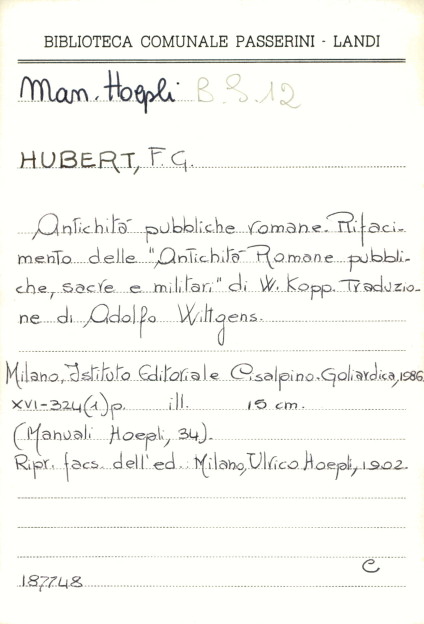 BIBLIOTECA COMUNALE PASSERINI - LANDI
Man. Hoepli B.S.12
HUBERT, F.G.
Antichità pubbliche romane. Rifaci-
mento delle "Antichità Romane pubbli-
che, sacre e militari" di W. Kopp. Traduzio-
ne di Adolfo Wittgens.
Milano, Istituto Editoriale Cisalpino-Goliardica, 1986.
XVI-324(1)p. ill. 15 cm.
(Manuali Hoepli, 34).
Ripr. facs. dell'ed.: Milano, Ulrico Hoepli, 1902.
C
187748